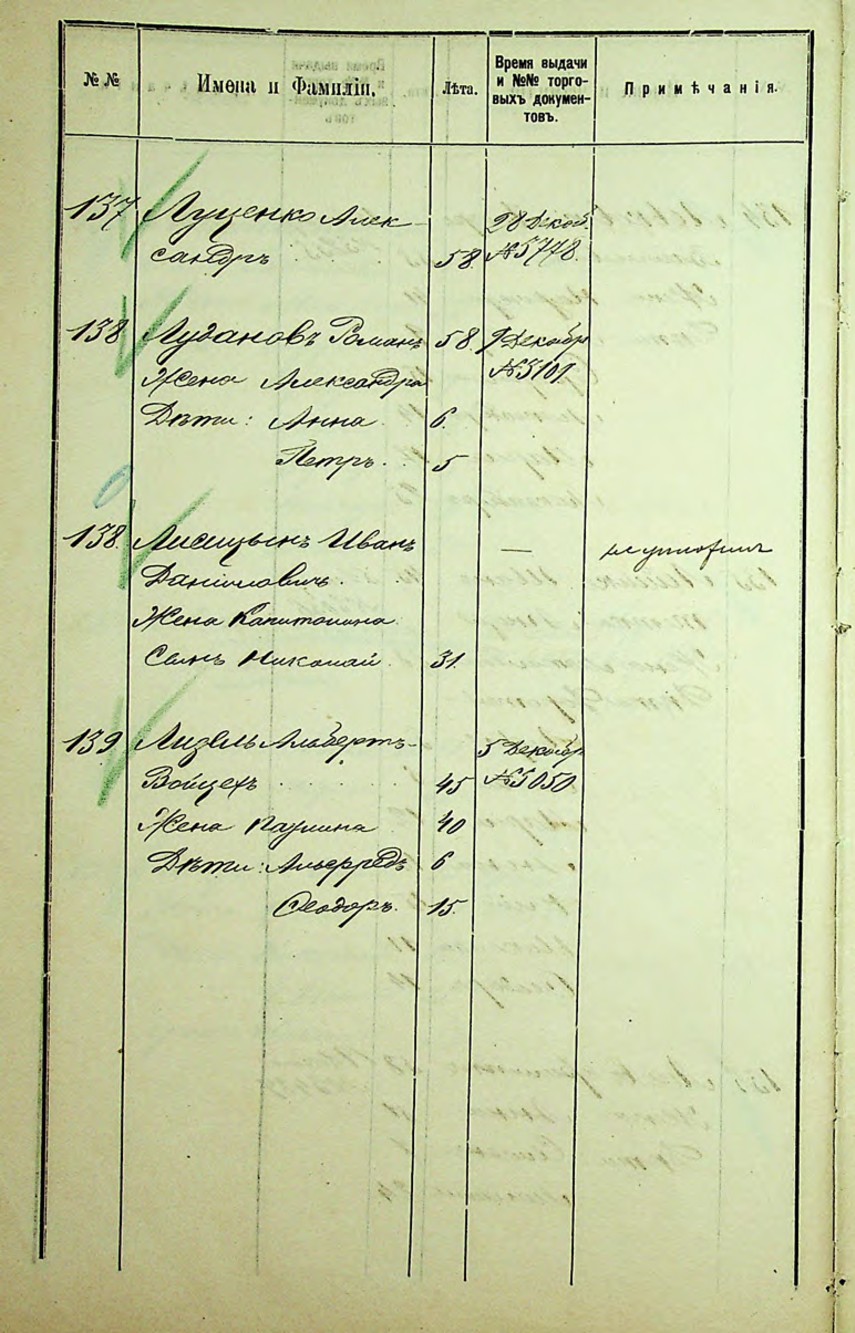 № №
Имена и Фамиліи.
Лѣта.
Время выдачи
и №№ торго-
выхъ докумен-
товъ.
Примѣчанія.
137 Луценко Алек 28 Декаб.
сандръ 58 №5778.
138 Луганов Роман 58. 9 Декабр
Жена Александра №5101
Дѣти: Анна 6.
Петръ. 5
138. Лисицынъ Иванъ —
Даниловичъ.
Жена Капитолина
Сынъ Николай 31.
139 Лизель Альбертъ- 5 Декабр
Войцехъ 45 №5050
Жена Паулина 40
Дѣти: Альфредъ 6
Феодоръ. 15.